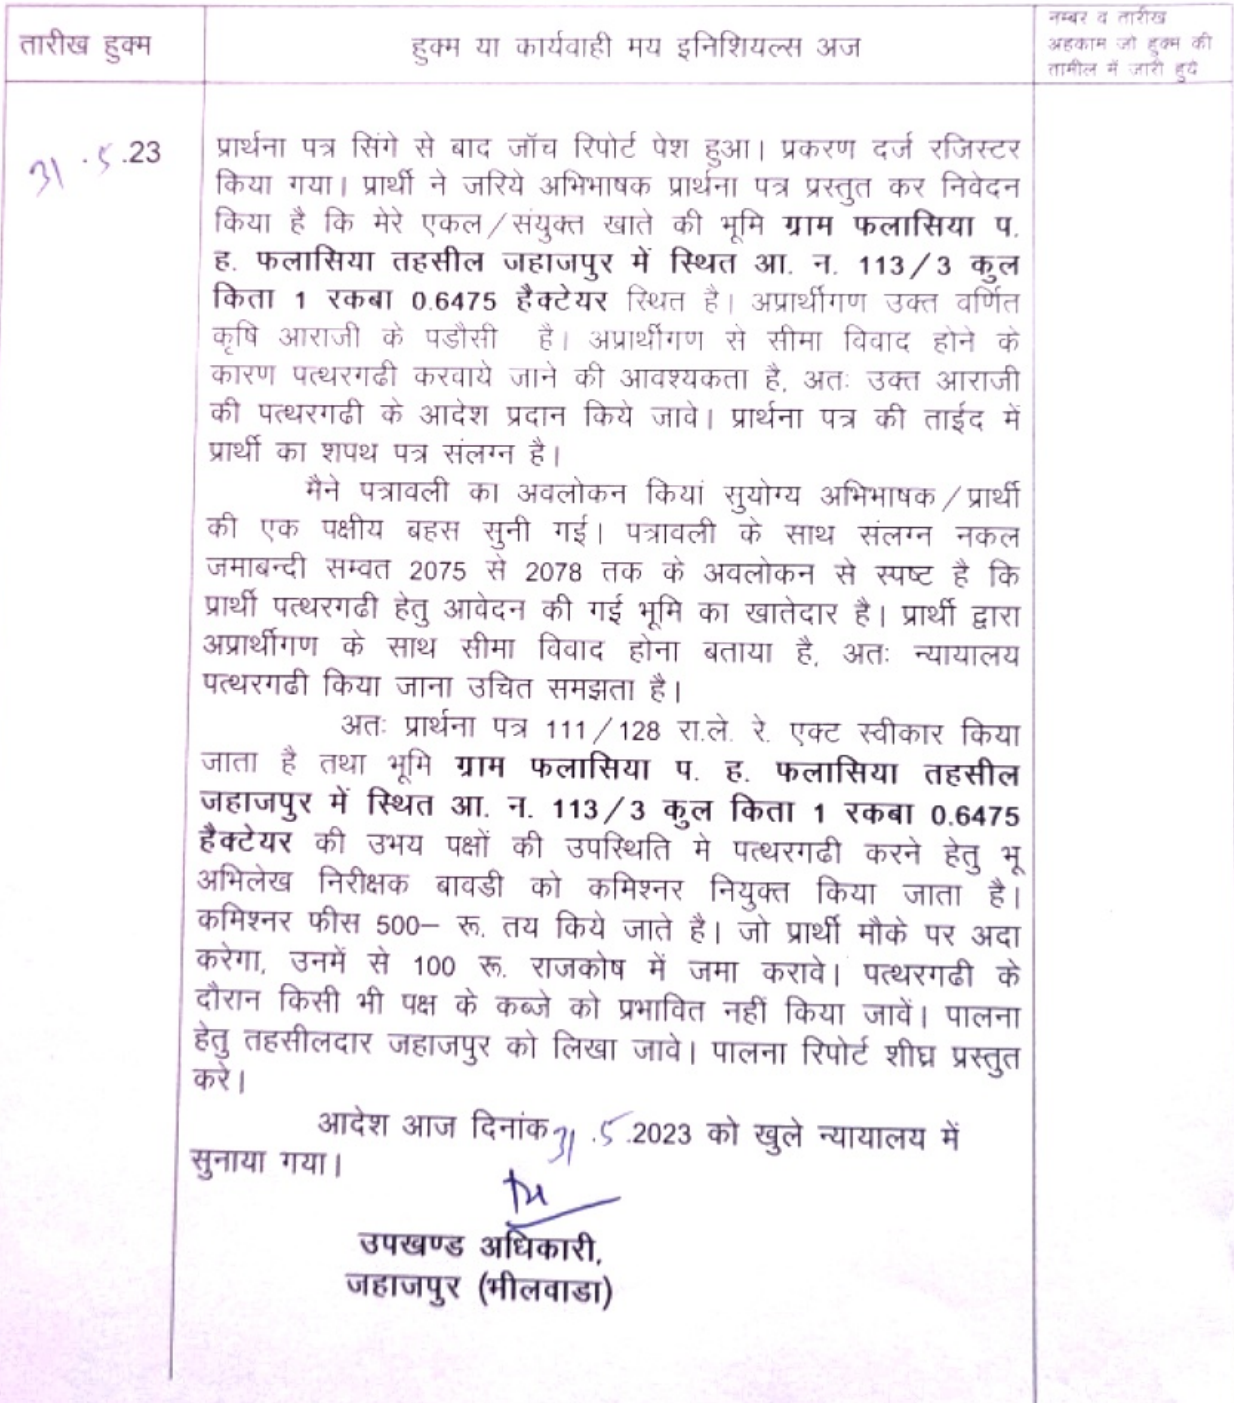 तारीख हुक्म
हुक्म या कार्यवाही मय इनिशियल्स अज
नम्बर व तारीख
अहकाम जो हुक्म की
तामील में जारी हुये
31.5.23
प्रार्थना पत्र सिंगे से बाद जॉच रिपोर्ट पेश हुआ। प्रकरण दर्ज रजिस्टर
किया गया। प्रार्थी ने जरिये अभिभाषक प्रार्थना पत्र प्रस्तुत कर निवेदन
किया है कि मेरे एकल/संयुक्त खाते की भूमि ग्राम फलासिया प.
ह. फलासिया तहसील जहाजपुर में स्थित आ. न. 113/3 कुल
किता 1 रकबा 0.6475 हैक्टेयर स्थित है। अप्रार्थीगण उक्त वर्णित
कृषि आराजी के पडौसी है। अप्रार्थीगण से सीमा विवाद होने के
कारण पत्थरगढी करवाये जाने की आवश्यकता है, अतः उक्त आराजी
की पत्थरगढी के आदेश प्रदान किये जावे। प्रार्थना पत्र की ताईद में
प्रार्थी का शपथ पत्र संलग्न है।
मैने पत्रावली का अवलोकन कियां सुयोग्य अभिभाषक/प्रार्थी
की एक पक्षीय बहस सुनी गई। पत्रावली के साथ संलग्न नकल
जमाबन्दी सम्वत 2075 से 2078 तक के अवलोकन से स्पष्ट है कि
प्रार्थी पत्थरगढी हेतु आवेदन की गई भूमि का खातेदार है। प्रार्थी द्वारा
अप्रार्थीगण के साथ सीमा विवाद होना बताया है, अतः न्यायालय
पत्थरगढी किया जाना उचित समझता है।
अतः प्रार्थना पत्र 111/128 रा.ले. रे. एक्ट स्वीकार किया
जाता है तथा भूमि ग्राम फलासिया प. ह. फलासिया तहसील
जहाजपुर में स्थित आ. न. 113/3 कुल किता 1 रकबा 0.6475
हैक्टेयर की उभय पक्षों की उपस्थिति मे पत्थरगढी करने हेतु भू
अभिलेख निरीक्षक बावडी को कमिश्नर नियुक्त किया जाता है।
कमिश्नर फीस 500– रू. तय किये जाते है। जो प्रार्थी मौके पर अदा
करेगा, उनमें से 100 रू. राजकोष में जमा करावे। पत्थरगढी के
दौरान किसी भी पक्ष के कब्जे को प्रभावित नहीं किया जावें। पालना
हेतु तहसीलदार जहाजपुर को लिखा जावे। पालना रिपोर्ट शीघ्र प्रस्तुत
करे।
आदेश आज दिनांक 31.5.2023 को खुले न्यायालय में
सुनाया गया।
उपखण्ड अधिकारी,
जहाजपुर (भीलवाडा)